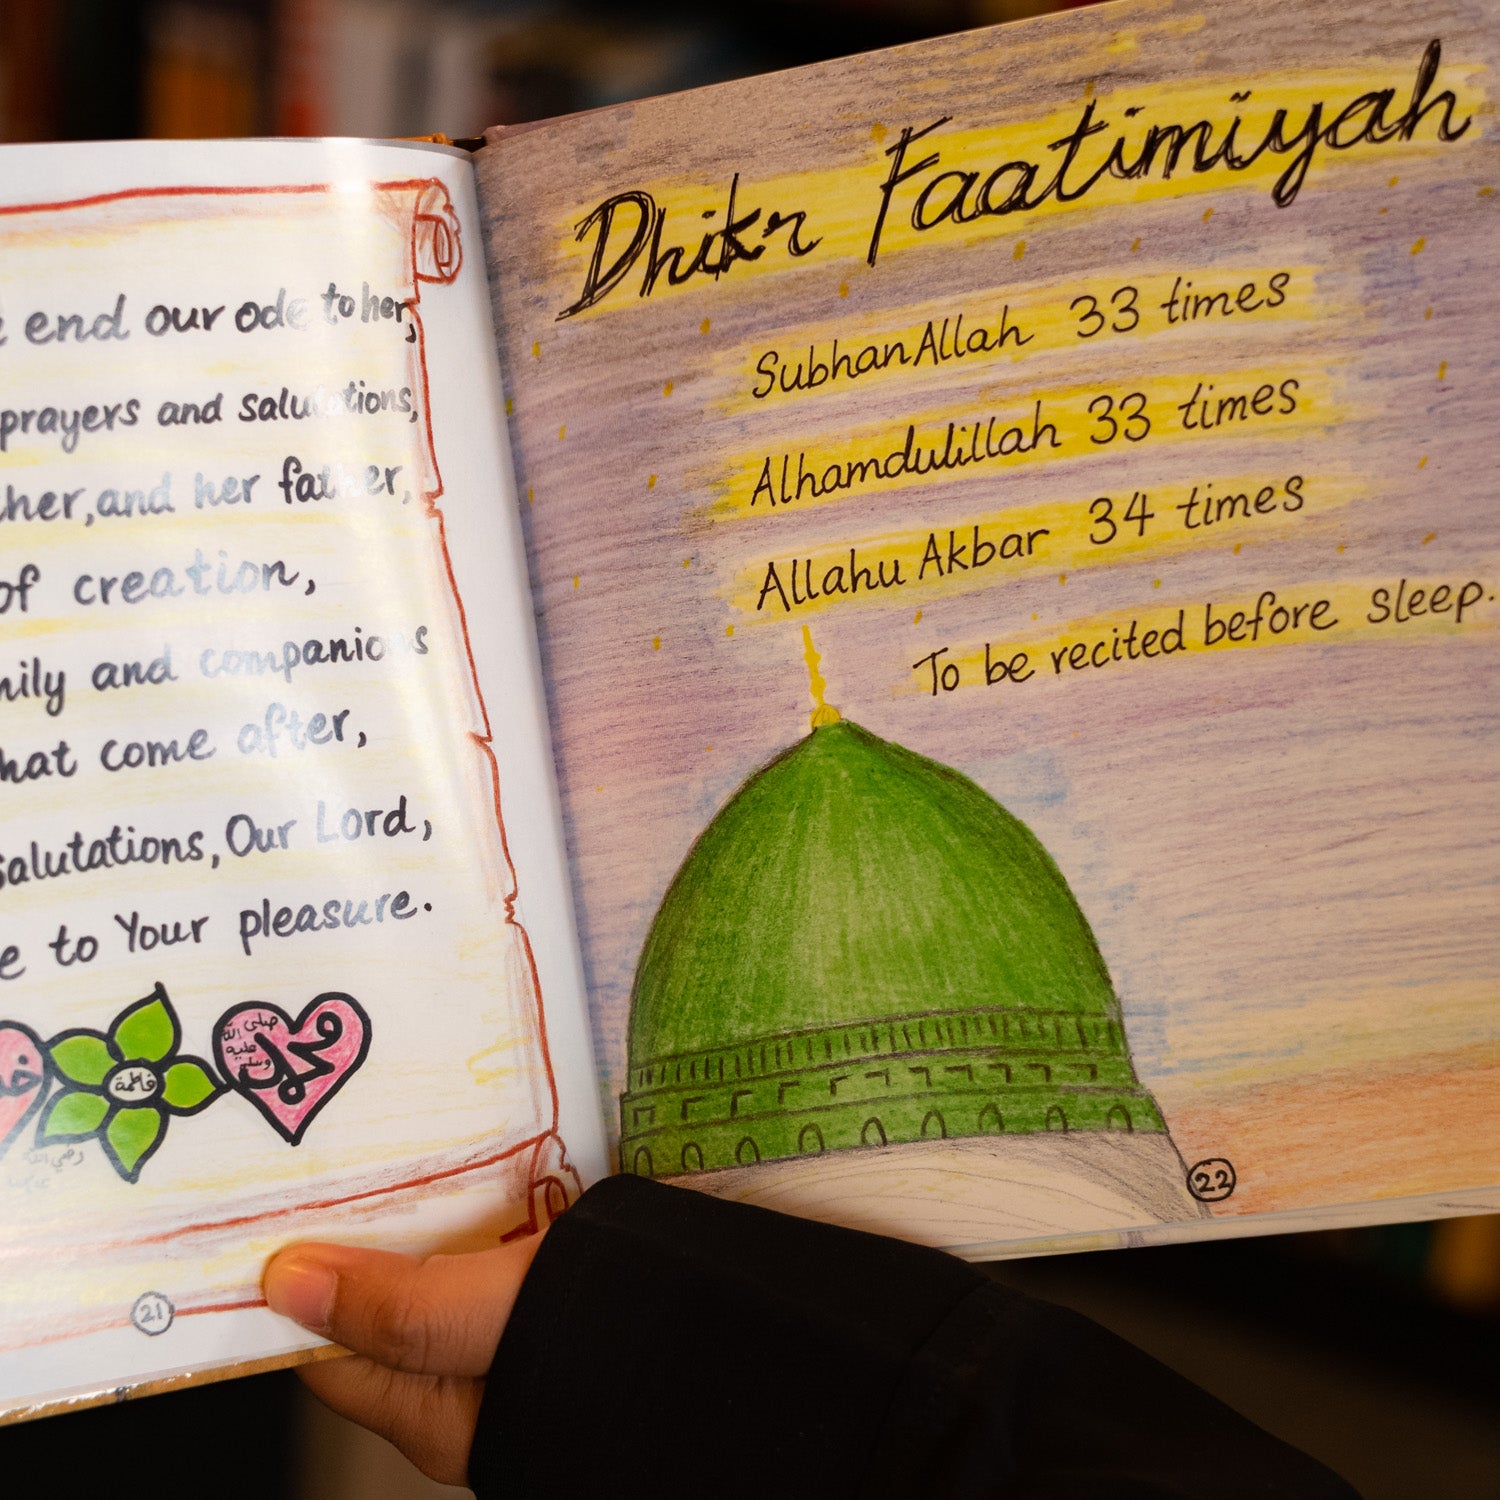 end our ode to her,
prayers and salutations,
her, and her father,
of creation,
and companions
come after,
salutations, Our Lord,
to Your pleasure.
فاطمة
صلى الله
عليه
وسلم
محمد
رضي الله
21
Dhikr Faatimiyah
SubhanAllah 33 times
Alhamdulillah 33 times
Allahu Akbar 34 times
To be recited before sleep.
22